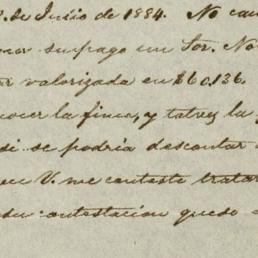 de Junio de 1884. No
su pago un Sor. No
valorizada en $60,136.
la finca, y talvez la
di se podria descontar
V. me conteste
su contestacion quedo